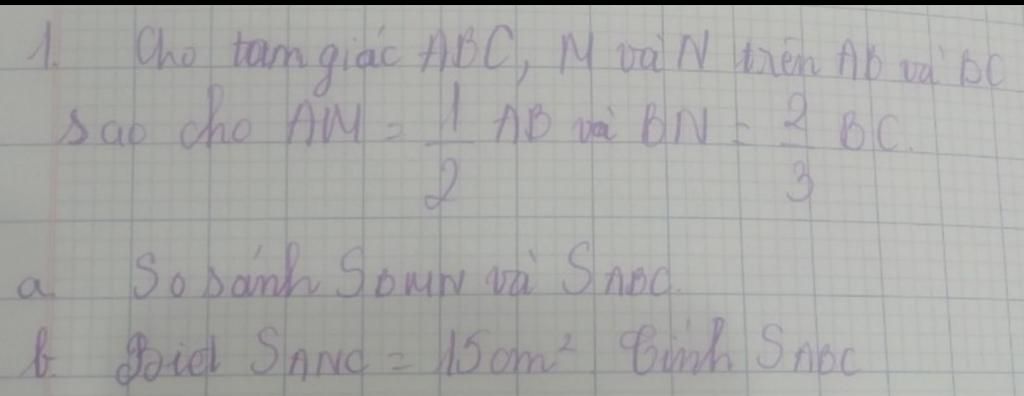 1. Cho tam giác ABC, M và N trên AB và BC
sao cho AM = 1/2 AB và BN = 2/3 BC.
a So sánh SBMN và SABC.
b Biết SANC = 15cm² Tính SABC